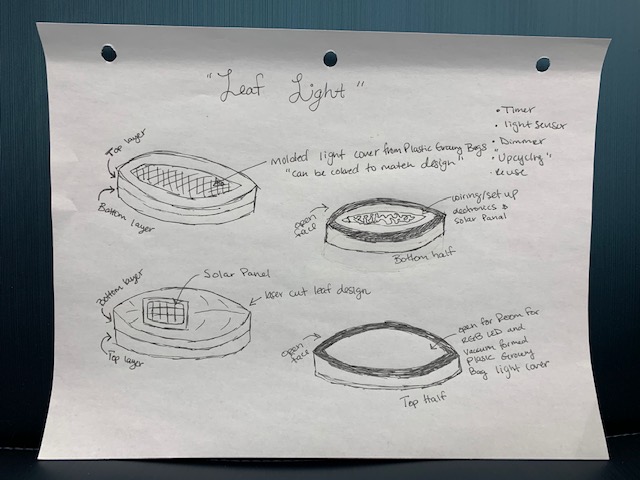 "Leaf Light"
• Timer
• light sensor
• Dimmer
• "Upcycling"
• Reuse
Top layer
Bottom layer
molded light cover from Plastic Grocery Bags
"can be colored to match design"
open
face
wiring/set up
electronics &
solar Panal
Bottom half
Bottom layer
Top layer
Solar Panel
laser cut leaf design
open
face
open for Room for
RGB LED and
vacuum formed
Plasic Grocery
Bag light cover
Top Half